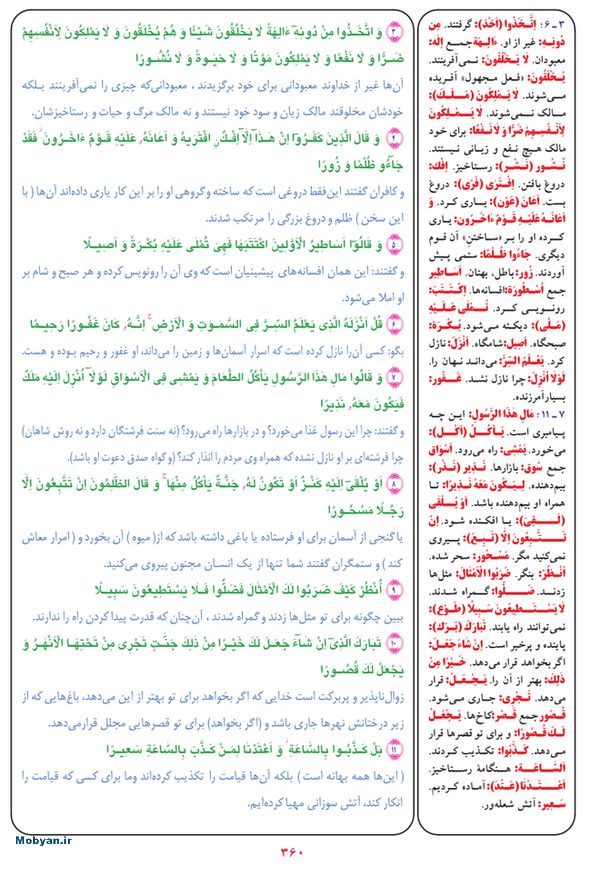 ۳ـ۶: اِتَّخَذُوا (أخَذَ): گرفتند. مِن
دُونِهِ: غیر از او. ءَالِهَةً: جمع إله:
معبودان. لا یَخْلُقُونَ: نمی‌آفرینند.
یُخْلَقُونَ: «فعل مجهول» آفریده
می‌شوند. لا یَمْلِکُونَ (مَلَکَ):
مالک نمی‌شوند. لا یَمْلِکُونَ
لِأَنْفُسِهِمْ ضَرًّا وَ لا نَفْعًا: برای خود
مالک هیچ نفع و زیانی نیستند.
نُشُور (نَشَرَ): رستاخیز. إِفْك:
دروغ بافتن. اِفْتَرَی (فَرَیَ): دروغ
بست. أعَانَ (عَوَنَ): یاری کرد. وَ
أَعَانَهُ عَلَیْهِ قَوْمٌ ءَاخَرُونَ: یاری
کرده او را بر «ساختن» آن قوم
دیگری. جَاءُوا ظُلْمًا: ستمی پیش
آوردند. زُور: باطل، بهتان. أَسَاطیر
جمع أُسْطُورَة: افسانه‌ها. اِکْتَتَبَ:
رونویسی کرد. تُمْلَی عَلَیْهِ
(مَلَیَ): دیکته می‌شود. بُکْرَة:
صبحگاه. أَصیل: شامگاه. أَنْزَلَ: نازل
کرد. یَعْلَمُ السِّرَّ: می‌داند نهان را.
لَوْلا أُنْزِلَ: چرا نازل نشد. غَفُور:
بسیار آمرزنده.
۷ـ۱۱: مَالِ هَذَا الرَّسُولِ: این چه
پیامبری است. یَأْکُلُ (أَکَلَ):
می‌خورد. یَمْشی: راه می‌رود. أَسْوَاق
جمع سُوق: بازارها. نَذیر (نَذَرَ):
بیم‌دهنده. لِیَکُونَ مَعَهُ نَذیرًا: تا
همراه او بیم‌دهنده باشد. أَوْ یُلْقَی
(لَقِیَ): یا افکنده شود. إِنْ
تَتَّبِعُونَ إِلَّا (تَبِعَ): پیروی
نمی‌کنید مگر. مَسْحُور: سحر شده.
اُنْظُرْ: بنگر. ضَرَبُوا الْأَمْثَالَ: مثل‌ها
زدند. ضَلُّوا: گمراه شدند.
لا یَسْتَطیعُونَ سَبیلًا (طَوَعَ):
نمی‌توانند راه یابند. تَبَارَكَ (بَرَكَ):
پاینده و پرخیر است. إِنْ شَاءَ جَعَلَ:
اگر بخواهد قرار می‌دهد. خَیْرًا مِنْ
ذَلِكَ: بهتر از آن را. یَجْعَلْ: قرار
می‌دهد. تَجْری: جاری می‌شود.
قُصُور جمع قَصْر: کاخ‌ها. یَجْعَلْ
لَكَ قُصُورًا: و برای تو قصرها قرار
می‌دهد. کَذَّبُوا: تکذیب کردند.
اَلسَّاعَة: هنگامهٔ رستاخیز.
أَعْتَدْنَا (عَتَدَ): آماده کردیم.
سَعیر: آتش شعله‌ور.
۳ وَ اتَّخَذُوا مِنْ دُونِهِ ءَالِهَةً لا یَخْلُقُونَ شَیْئًا وَ هُمْ یُخْلَقُونَ وَ لا یَمْلِکُونَ لِأَنْفُسِهِمْ
ضَرًّا وَ لا نَفْعًا وَ لا یَمْلِکُونَ مَوْتًا وَ لا حَیَوةً وَ لا نُشُورًا
آن‌ها غیر از خداوند معبودانی برای خود برگزیدند ، معبودانی‌که چیزی را نمی‌آفرینند بلکه
خودشان مخلوقند مالک زیان و سود خود نیستند و نه مالک مرگ و حیات و رستاخیزشان.
۴ وَ قَالَ الَّذینَ کَفَرُوا إِنْ هَذَا إِلَّا إِفْكٌ افْتَرَیهُ وَ أَعَانَهُ عَلَیْهِ قَوْمٌ ءَاخَرُونَ فَقَدْ
جَاءُو ظُلْمًا وَ زُورًا
و کافران گفتند این‌فقط دروغی است که ساخته وگروهی او را بر این کار یاری داده‌اند آن‌ها ( با
این سخن ) ظلم و دروغ بزرگی را مرتکب شدند.
۵ وَ قَالُوا أَسَاطیرُ الْأَوَّلینَ اکْتَتَبَهَا فَهِیَ تُمْلَی عَلَیْهِ بُکْرَةً وَ أَصیلًا
و گفتند: این همان افسانه‌های پیشینیان است که وی آن را رونویس کرده و هر صبح و شام بر
او املا می‌شود.
۶ قُلْ أَنْزَلَهُ الَّذی یَعْلَمُ السِّرَّ فِی السَّمَوَتِ وَ الْأَرْضِ إِنَّهُ کَانَ غَفُورًا رَحیمًا
بگو: کسی آن‌را نازل کرده است که اسرار آسمان‌ها و زمین را می‌داند، او غفور و رحیم بوده و هست.
۷ وَ قَالُوا مَالِ هَذَا الرَّسُولِ یَأْکُلُ الطَّعَامَ وَ یَمْشی فِی الْأَسْوَاقِ لَوْلا أُنْزِلَ إِلَیْهِ مَلَكٌ
فَیَکُونَ مَعَهُ نَذیرًا
و گفتند: چرا این رسول غذا می‌خورد؟ و در بازارها راه می‌رود؟ (نه سنت فرشتگان دارد و نه روش شاهان)
چرا فرشته‌ای بر او نازل نشده که همراه وی مردم را انذار کند؟ (و گواه صدق دعوت او باشد).
۸ أَوْ یُلْقَی إِلَیْهِ کَنْزٌ أَوْ تَکُونُ لَهُ جَنَّةٌ یَأْکُلُ مِنْهَا وَ قَالَ الظَّلِمُونَ إِنْ تَتَّبِعُونَ إِلَّا
رَجُلًا مَسْحُورًا
یا گنجی از آسمان برای او فرستاده یا باغی داشته باشد که از( میوه ) آن بخورد و ( امرار معاش
کند ) و ستمگران گفتند شما تنها از یک انسان مجنون پیروی می‌کنید.
۹ اُنْظُرْ کَیْفَ ضَرَبُوا لَكَ الْأَمْثَالَ فَضَلُّوا فَلا یَسْتَطیعُونَ سَبیلًا
ببین چگونه برای تو مثل‌ها زدند و گمراه شدند ، آن‌چنان که قدرت پیدا کردن راه را ندارند.
۱۰ تَبَارَكَ الَّذی إِنْ شَاءَ جَعَلَ لَكَ خَیْرًا مِنْ ذَلِكَ جَنَّتٍ تَجْری مِنْ تَحْتِهَا الْأَنْهَرُ وَ
یَجْعَلْ لَكَ قُصُورًا
زوال‌ناپذیر و پربرکت است خدایی که اگر بخواهد برای تو بهتر از این می‌دهد، باغ‌هایی که از
زیر درختانش نهرها جاری باشد و (اگر بخواهد) برای تو قصرهایی مجلل قرارمی‌دهد.
۱۱ بَلْ کَذَّبُوا بِالسَّاعَةِ وَ أَعْتَدْنَا لِمَنْ کَذَّبَ بِالسَّاعَةِ سَعیرًا
( این‌ها همه بهانه است ) بلکه آن‌ها قیامت را تکذیب کرده‌اند وما برای کسی که قیامت را
انکار کند، آتش سوزانی مهیا کرده‌ایم.
Mobyan.ir
۳۶۰